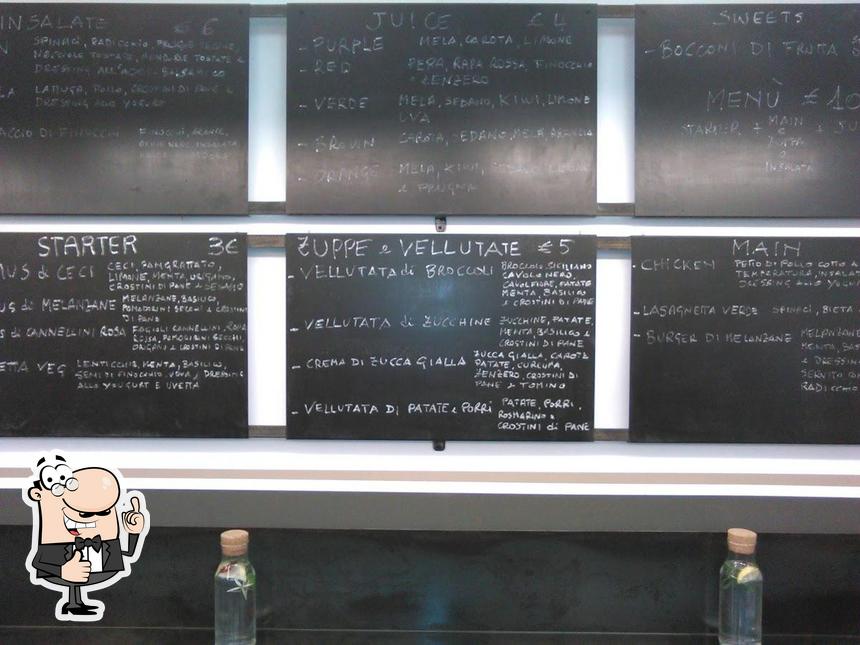 INSALATE € 6
SPINACI, RADICCHIO,
NOCCIOLE TOSTATE, MANDORLE TOSTATE e
DRESSING ALL'ACETO BALSAMICO
LATTUGA, POLLO, CROSTINI DI PANE e
DRESSING ALLO YOGURT
FINOCCHI, ARANCE,
OLIVE NERE, INSALATA
JUICE € 4
- PURPLE MELA, CAROTA, LIMONE
- RED PERA, RAPA ROSSA, FINOCCHIO
e ZENZERO
- VERDE MELA, SEDANO, KIWI, LIMONE
UVA
- BROWN CAROTA, SEDANO, MELA, ARANCIA
- ORANGE MELA, KIWI,
e PRUGNA
SWEETS
- BOCCONI DI FRUTTA
MENÙ € 10
STARTER + MAIN +
O
ZUPPA
O
INSALATA
STARTER 3€
MUS di CECI CECI, SAMGRATTATO,
LIMONE, MENTA, ORIGANO,
CROSTINI DI PANE e SESAMO
US di MELANZANE MELANZANE, BASILICO,
POMODORINI SECCHI e CROSTINI
DI PANE
S di CANNELLINI ROSA FAGIOLI CANNELLINI, RAPA
ROSSA, POMODORINI SECCHI,
ORIGANO e CROSTINI DI PANE
ETTA VEG LENTICCHIE, MENTA, BASILICO,
SEMI DI FINOCCHIO, UOVA, DRESSING
ALLO YOUGURT E UVETTA
ZUPPE e VELLUTATE € 5
- VELLUTATA di BROCCOLI BROCCOLO SICILIANO
CAVOLO NERO,
CAVOLFIORE, PATATE
MENTA, BASILICO
e CROSTINI DI PANE
- VELLUTATA di ZUCCHINE ZUCCHINE, PATATE,
MENTA, BASILICO e
CROSTINI DI PANE
- CREMA DI ZUCCA GIALLA ZUCCA GIALLA, CAROTE
PATATE, CURCUMA,
ZENZERO, CROSTINI DI
PANE e TOMINO
- VELLUTATA DI PATATE e PORRI PATATE, PORRI,
ROSMARINO e
CROSTINI di PANE
MAIN
- CHICKEN PETTO DI POLLO COTTO A
TEMPERATURA, INSALA
DRESSING ALLO YOGU
- LASAGNETTA VERDE SPINACI, BIETA
- BURGER DI MELANZANE MELANZANE
MENTA, BAS
e DRESSIN
SERVITO
RADICCHIO